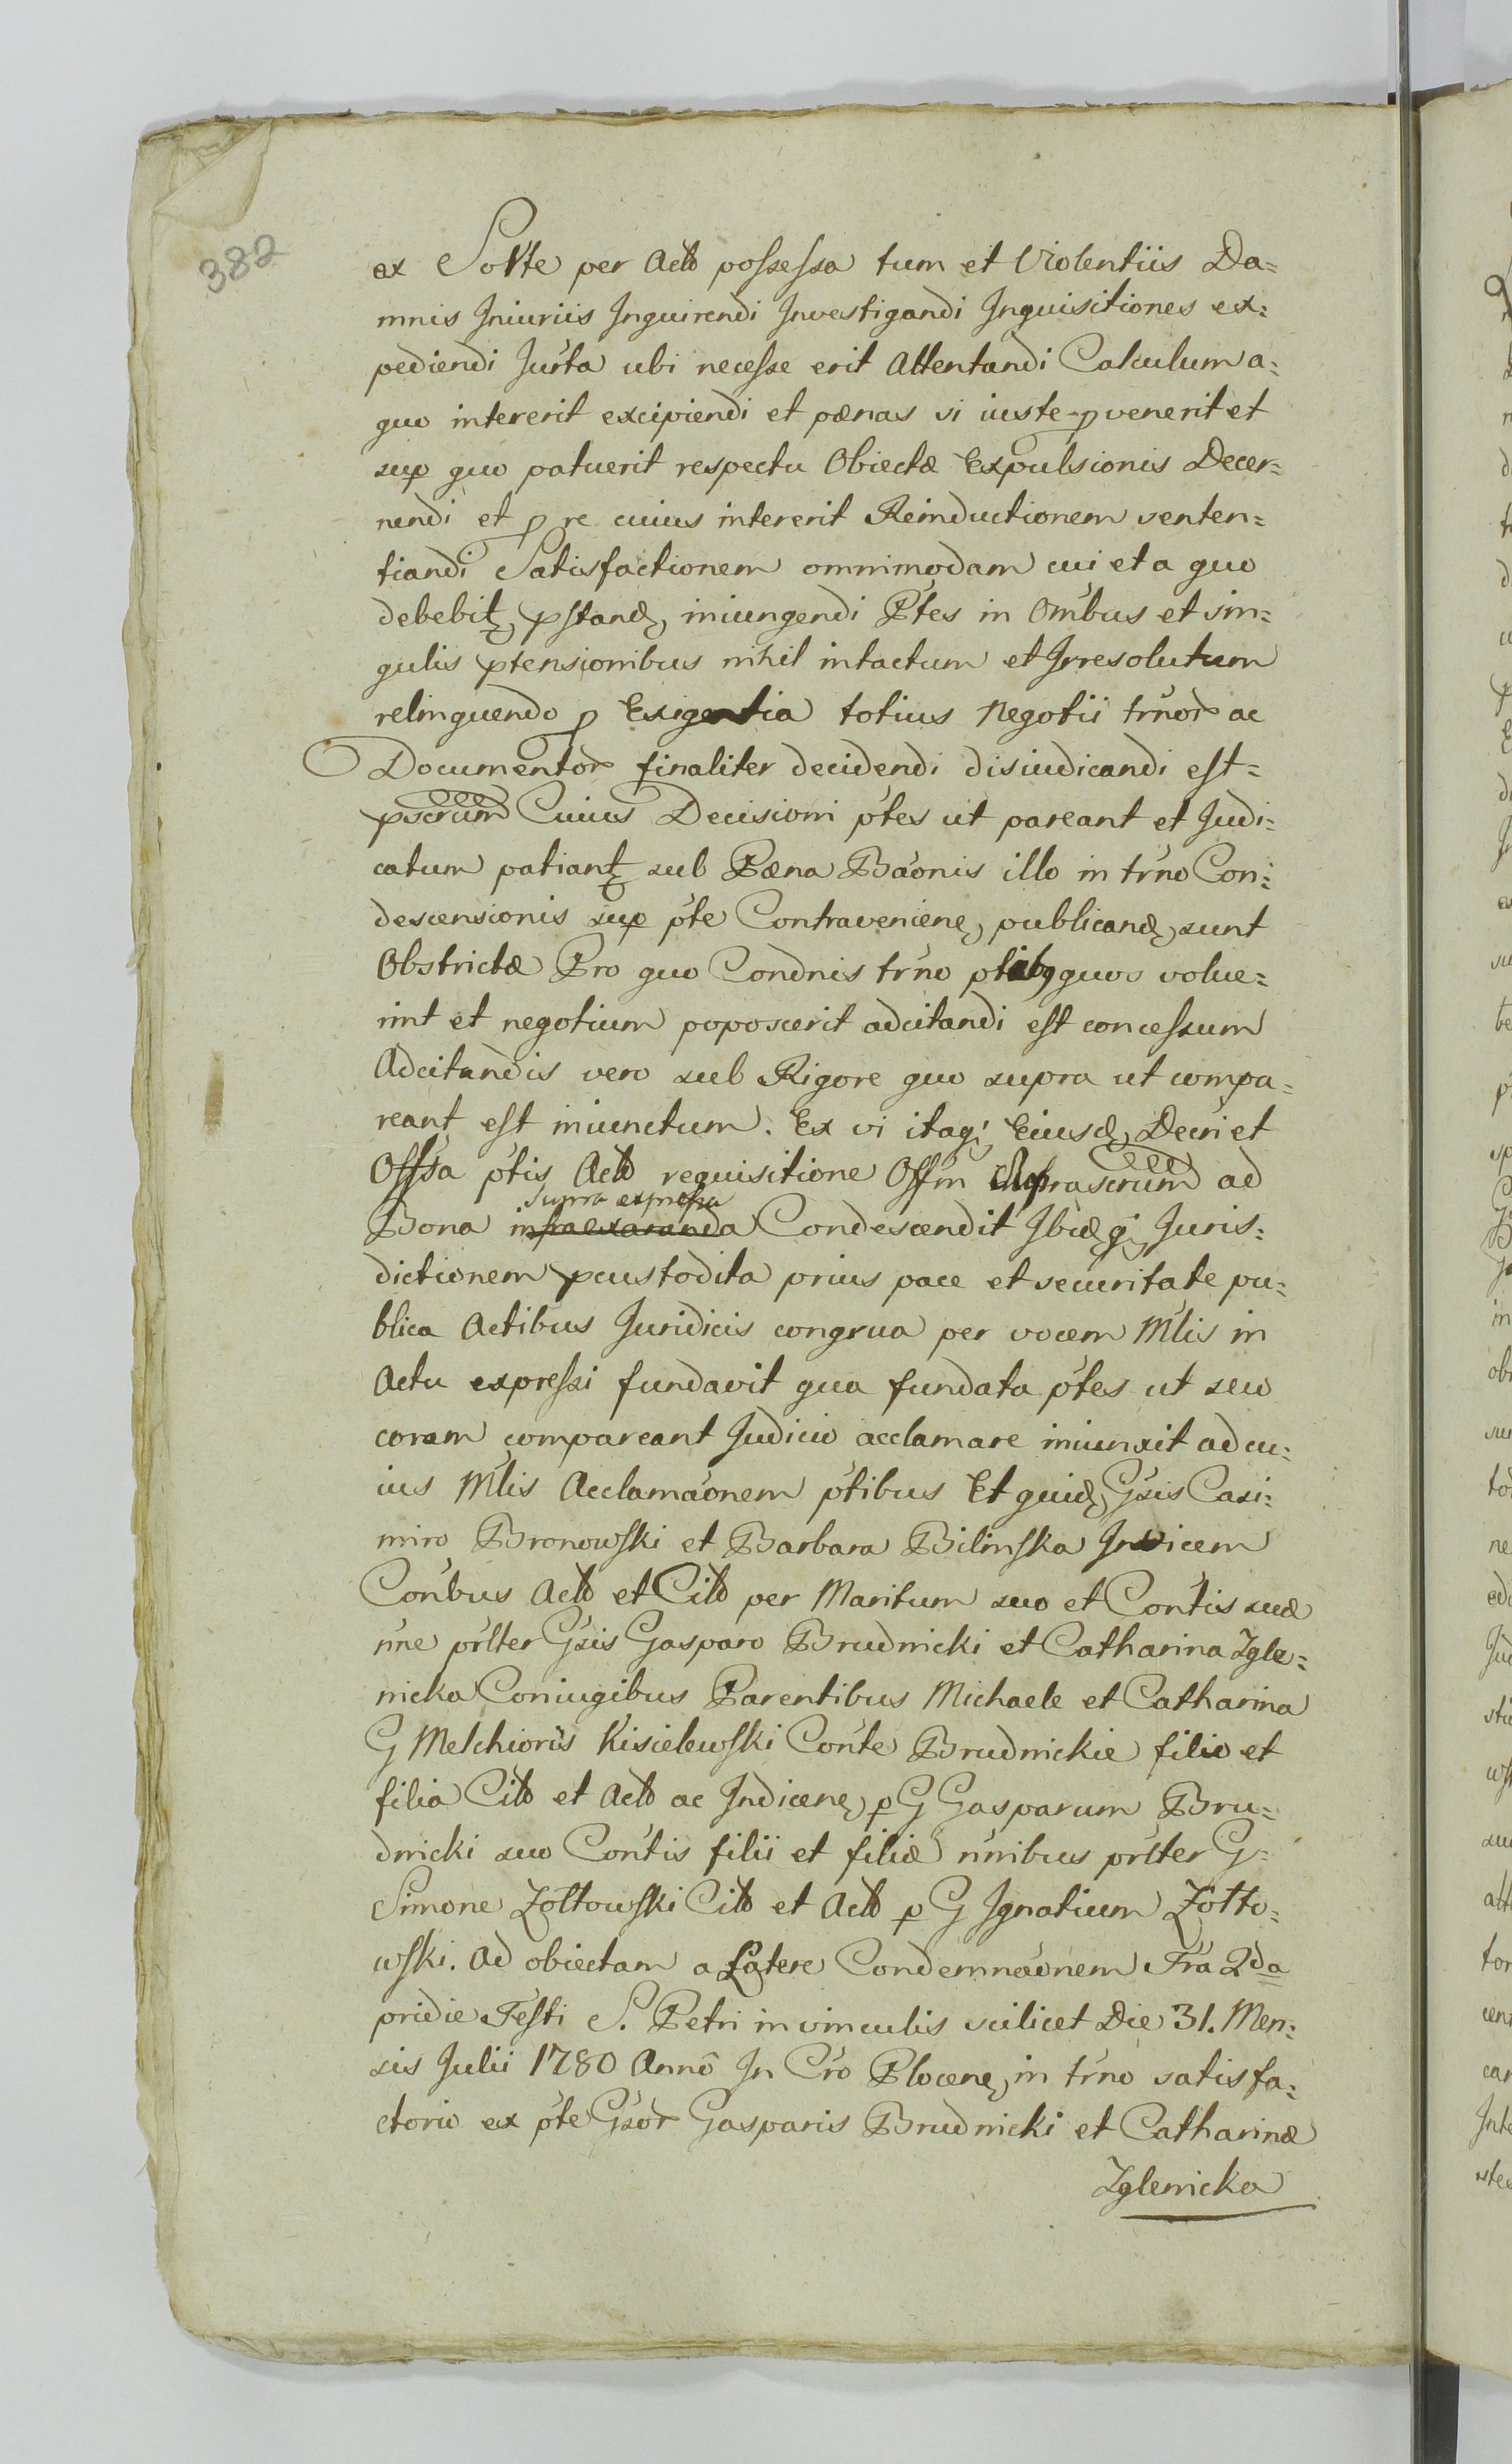 382
ex Sorte per Actο possessa tum et Violentiis Da=
mnis Iniuriis Inquirendi Investigandi Inquisitiones ex=
pediendi Iurta ubi necesse erit Attentandi Calculum a=
quo intererit excipiendi et pœnas si iuste pvenerit et
sup quo patuerit respectu Obiectæ Expulsionis Decer=
nendi et p re cuius intererit Reinductionem senten=
tiandi Satisfactionem omnimodam cui et a quo
debebit, pstand, iniungendi Ptes in Ombus et sin=
gulis ptensionibus nihil intactum et Irresolutum
relinquendo p Exigentia totius Negotii trnor ac
Documentor finaliter decidendi disiudicandi est=
pscrum Cuius Decisioni ptes ut pareant et Judi=
catum patiant sub Pæna Baonis illo in trno Con=
descensionis sup pte Contravenien, publicand, sunt
Obstrictæ Pro quo Condnis trno ptibq quos volue=
rint et negotium poposcerit adcitandi est concessum
Adcitandis vero sub Rigore quo supra ut compa=
reant est iniunctum. Ex vi itaq; Eiusd, Decri et
Offsa ptis Acto requisitione Offm suprascrum ad
supra expressa
Bona infraexaranda Condescendit Ibidq; Iuris=
dictionem pcustodita prius pace et securitate pu=
blica Actibus Juridicis congrua per vocem Mlis in
Actu expressi fundavit qua fundata ptes ut seu
coram compareant Judicio acclamare iniunxit ad cu=
ius Mlis Acclamaonem ptibus Et quid, Gsis Casi=
miro Bronowski et Barbara Bilinska Invicem
Conbus Acto et Cito per Maritum suo et Contis suæ
nne prlter Gsis Gasparo Brudnicki et Catharina Zgle=
nicka Coniugibus Parentibus Michaele et Catharina
G Melchioris Kisielewski Conte Brudnickie filio et
filia Cito et Acto ac Indicen, p G Gasparum Bru=
dnicki suo Contis filii et filiæ nnibus prlter G=
Simone Zołtowski Cito et Acto p G Ignatium Zołto=
wski. Ad obiectam a Latere Condemnaonem Fra 2da
pridie Festi S. Petri in vinculis scilicet Die 31. Men=
sis Julii 1780 Anno In Cro Plocen, in trno satisfa=
ctorio ex pte Gsor Gasparis Brudnicki et Catharinæ
Zglenicka